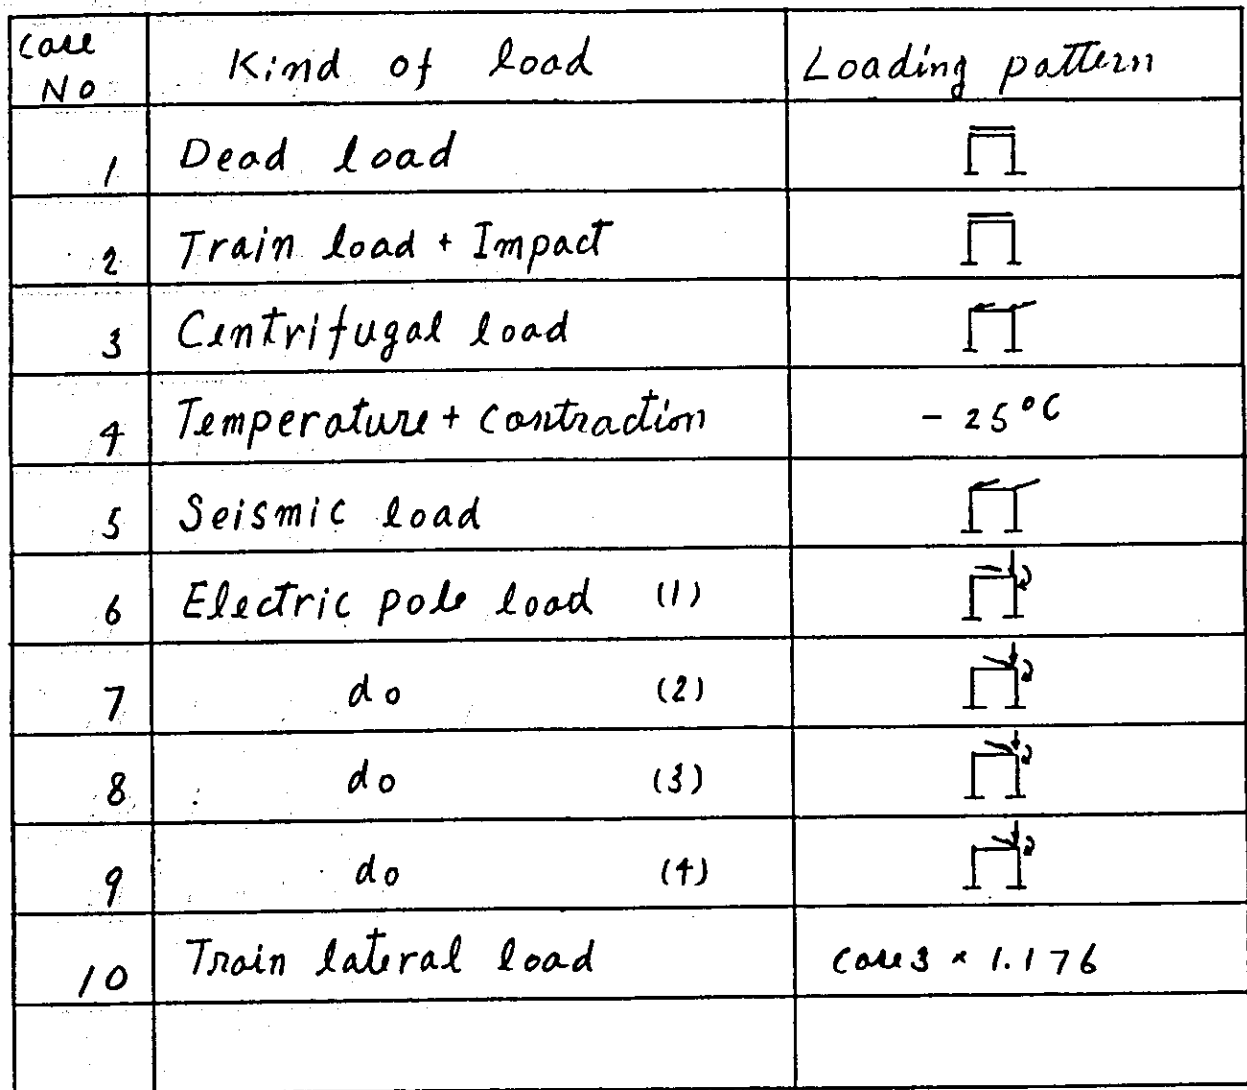 Case No Kind of load Loading pattern
1 Dead load
2 Train load + Impact
3 Centrifugal load
4 Temperature + Contraction - 25°C
5 Seismic load
6 Electric pole load (1)
7 do (2)
8 do (3)
9 do (4)
10 Train lateral load Case 3 × 1.176